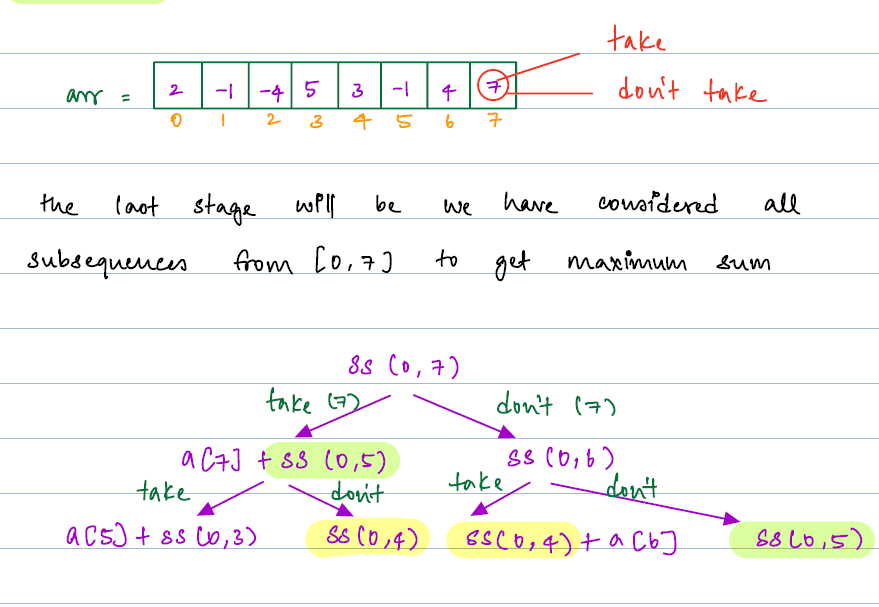 take
arr = 2 -1 -4 5 3 -1 4 7 don't take
0 1 2 3 4 5 6 7
the last stage will be we have considered all
subsequences from [0,7] to get maximum sum
ss (0,7)
take (7) don't (7)
a[7] + ss (0,5) ss (0,6)
take don't take don't
a[5] + ss (0,3) ss (0,4) ss(0,4) + a[6] ss (0,5)